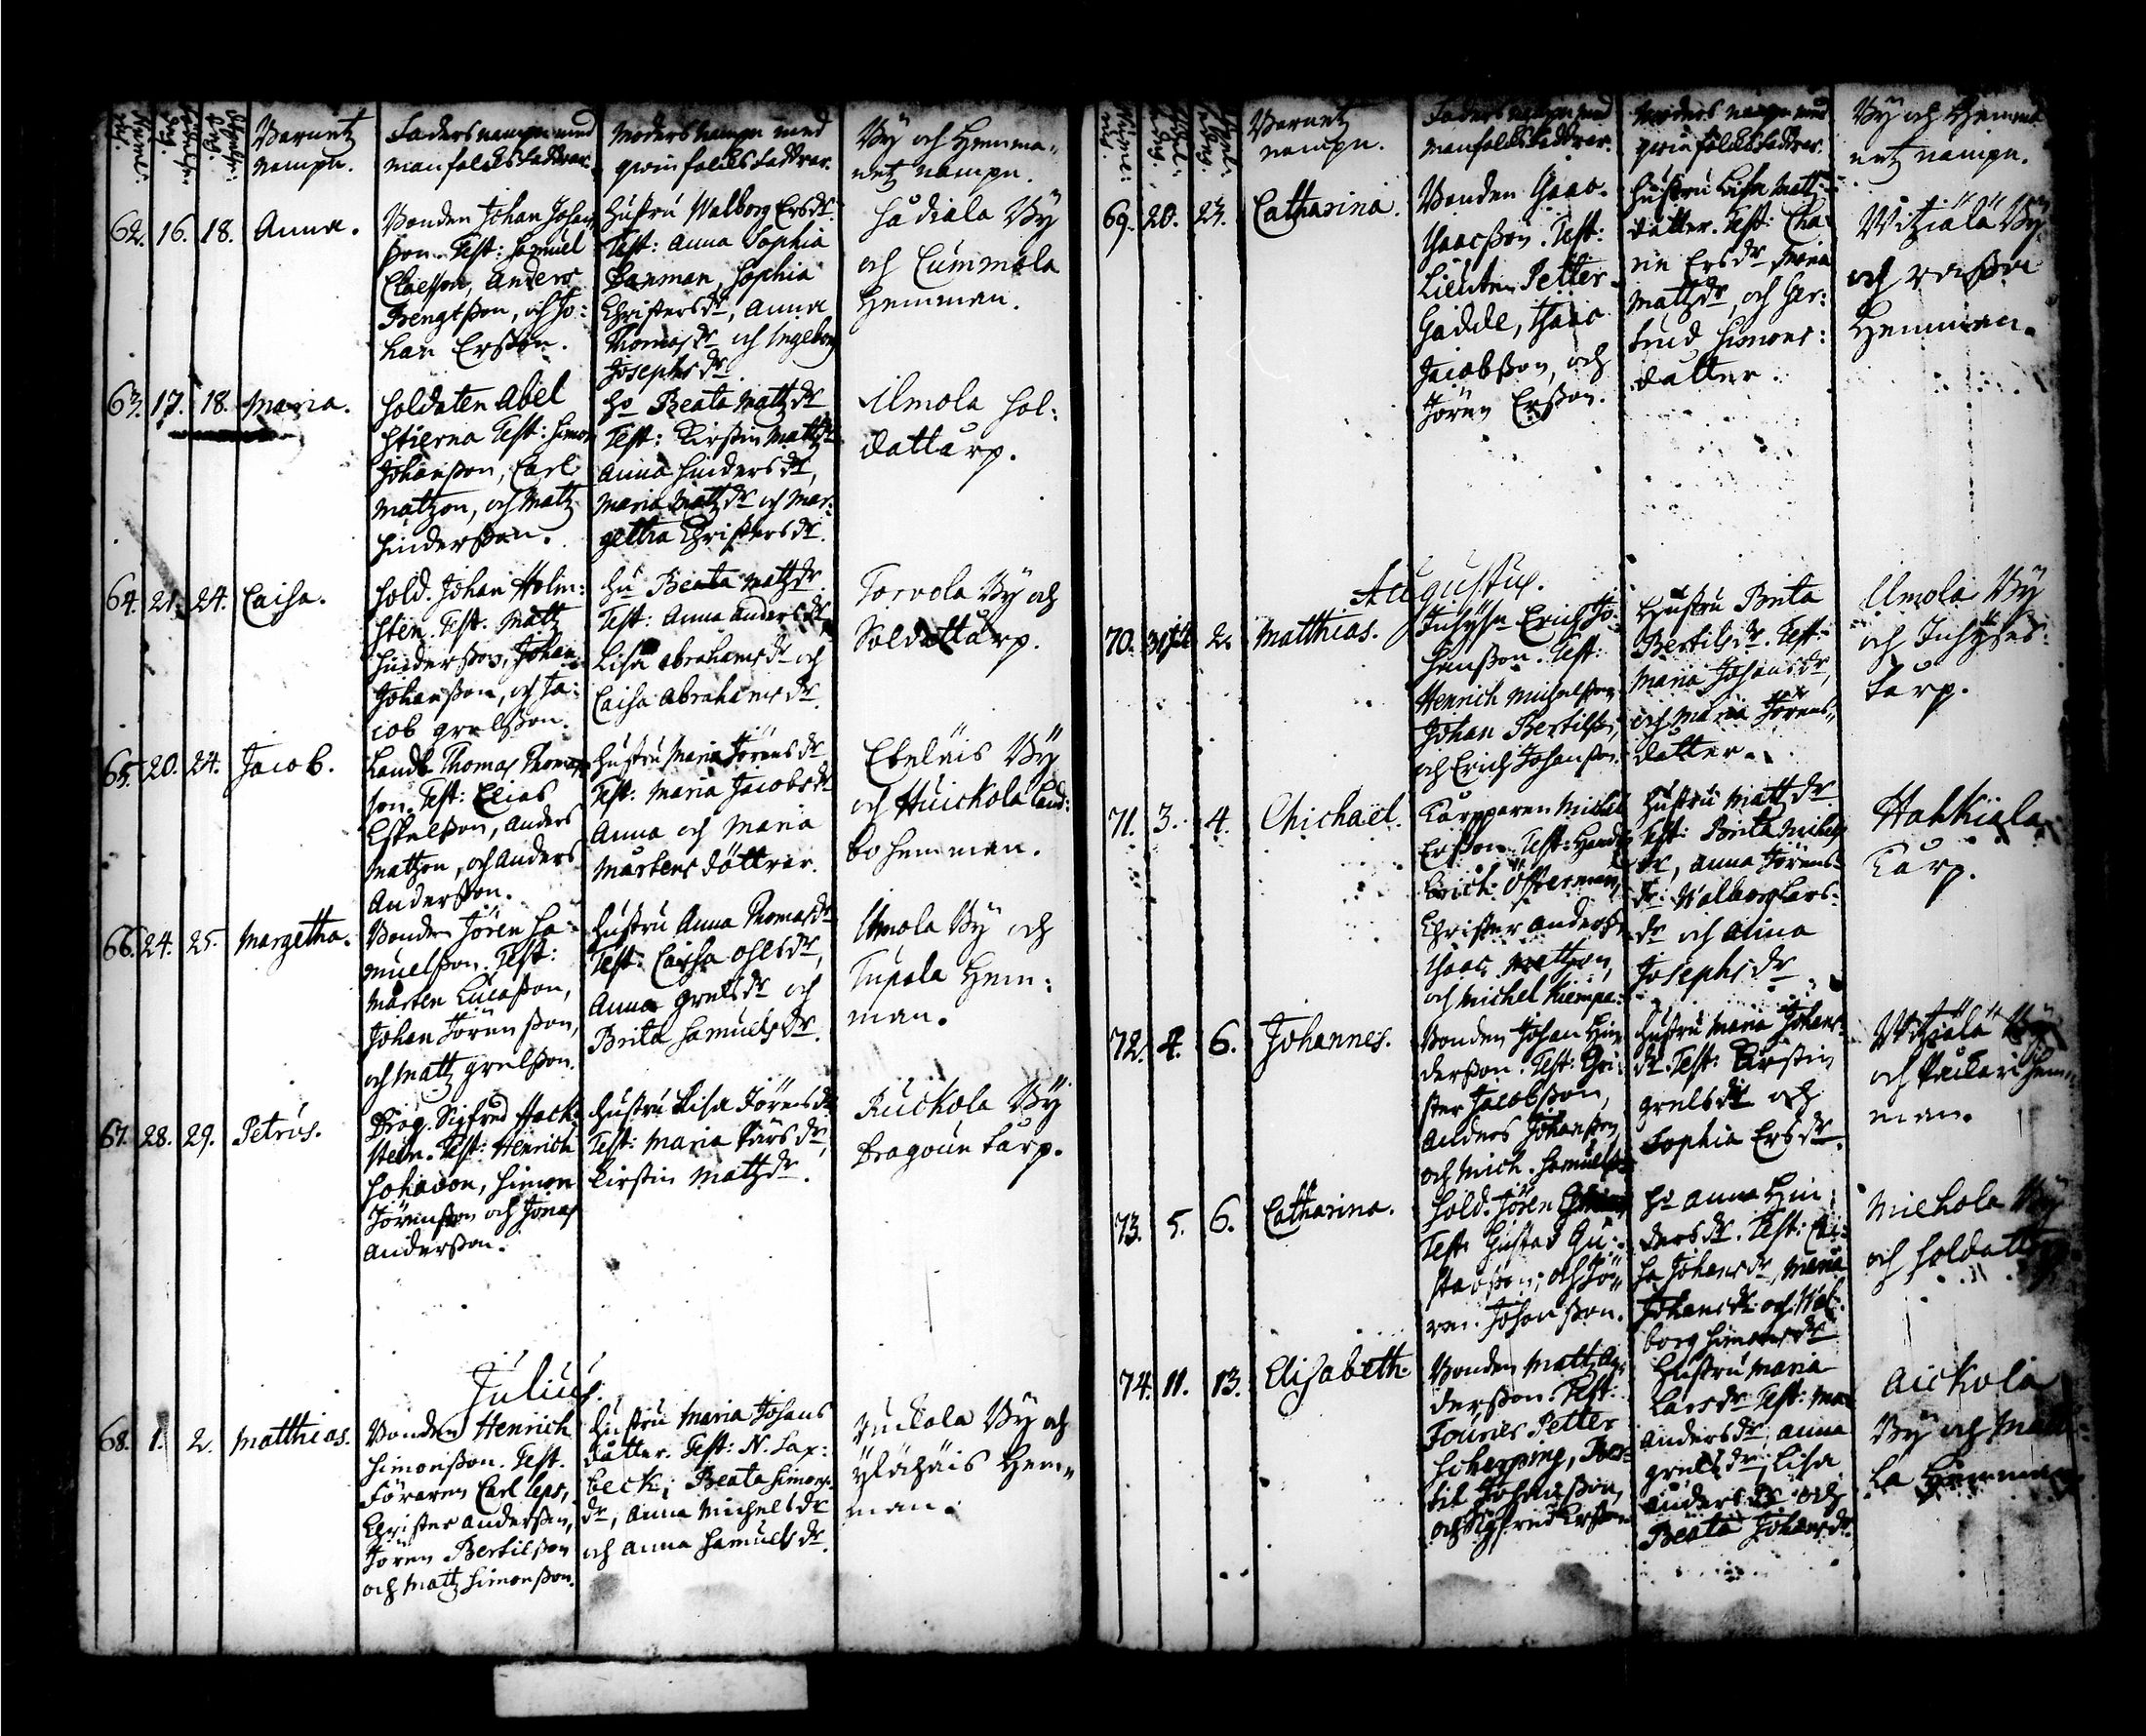 Barnetz
nampn.
Faders nampn med
manfolcks faddrar.
Moders nampn med
qwinfolcks faddrar.
By och Hemma-
netz nampn.
62. 16. 18. Anna.
Bonden Johan Johan
ßon. Test: Samuel
Claesson, Anders
Bengtßon, och Jo:
han Erßon.
Hustru Walborg Ersdr.
Test: Anna Sophia
Danman, Sophia
Christersdr, Anna
Thomasdr och Ingeborg
Josephsdr
Sådiala By
och Cummola
Hemman.
63. 17. 18. Maria.
Soldaten Abel
Stierna Test: Simon
Johanßon, Carl
Matzon, och Matz
Hinderßon.
Ho Beata Matzdr
Test: Kirstin Mattzdr
Anna Hindersdr,
Maria Mattzdr och Mar:
getha Christersdr.
Ilmola Sol:
dattårp.
64. 21. 24. Caisa.
Sold. Johan Holm:
sten. Test: Matz
Hinderßon, Johan
Johanßon, och Ja:
cob Grelsßon.
Hu Beata Matzdr
Test: Anna Andersdr
Lisa Abrahamsdr och
Caisa Abrahamsdr.
Torvola By och
Soldattårp.
65. 20. 24. Jacob.
Landb. Thomas Thomas
son. Test: Elias
Eskelßon, Anders
Matzon, och Anders
Anderßon.
Hustru Maria Jörensdr
Test: Maria Jacobsdr
Anna och Maria
Mårtens döttrar.
Eteläis By
och Huickola Land:
bo hemman.
66. 24. 25. Margetha.
Bonden Jören Sa-
muelßon. Test:
Mårten Lucaßon,
Johan Jörenßon,
och Mattz Grelßon.
Hustru Anna Thomasdr
Test: Caisa Ohlsdr,
Anna Grelsdr och
Brita Samuelsdr.
Ilmola By och
Tupala Hem:
man.
67. 28. 29. Petrus.
Drag. Sigfred Hack
sten. Test: Henrich
Sohavon, Simon
Jörenßon och Jonas
Anderßon.
Hustru Lisa Jörensdr
Test: Maria Pärsdr,
Kirstin Matzdr.
Ruckola By
Dragoun tårp.
Julius.
68. 1. 2. Matthias.
Bonden Henrich
Simonßon. Test.
Föraren Carl Leps,
Christer Anderßon,
Jören Bertilßon
och Mattz Simonßon.
Hustru Maria Johans
datter. Test: N. Lax:
beck, Beata Simons
dr, Anna Michelsdr
och Anna Samuelsdr.
Ruckola By och
Hem-
man.
Barnetz
nampn.
Faders nampn med
manfolcks faddrar.
Moders nampn med
qwinfolcks faddrar.
By och Hemma
netz nampn.
69. 20. 23. Catharina.
Bonden Isaac
Isaacßon. Test:
Lieuten. Petter
Gadde, Isaac
Jacobßon, och
Jören Erßon.
Hustru Lisa Matz:
datter. Test: Cha
rin Ersdr Maria
Matzdr, och Ger:
trud Simons:
datter.
Witziälä By
och
Hemman.
Augustus.
70. 31 Jul. 2. Matthias.
Inhyse Erich Jo:
hanßon. Test:
Henrich Michelßon
Johan Bertilß,
och Erich Johanßon.
Hustru Brita
Bertilsdr. Test:
Maria Johansdr,
och Maria Jörens
datter.
Ilmola By
och Inhyses:
tårp.
71. 3. 4. Michaël.
Tårpparen Michel
Erßon. Test:
Erich Österman,
Christer Anderß
Isaac Matzon,
och Michel Kiempa.
Hustru Mattzdr.
Test: Brita Michels
dr, Anna Jörens
dr Walborg Lars:
dr och Alina
Josephsdr
Hahkiala
Tårp.
72. 4. 6. Johannes.
Bonden Johan Hin
derßon. Test: Chri
ster Jacobßon,
Anders Johanßon
och Mich. Samuelß
Hustru Maria Johans
dr. Test: Kirstin
Grelsdr och
Sophia Ersdr.
Witziälä By
och Packari Hem-
man.
73. 5. 6. Catharina.
Sold. Jören
Test: Gustad Gu:
stavßon; och Jö:
ren Johanßon.
Ho Anna Hin
dersdr. Test: Cai:
sa Johansdr, Maria
Johansdr och Wal:
borg Simonsdr
Miehola By
och Soldattårp
74. 11. 13. Elisabeth.
Bonden Mattz An
derßon. Test:
Fourier Petter
Scherping, Ber-
til Johanßon,
och Sigfred Erßon
Hustru Maria
Larsdr Test: Mar
Andersdr, Anna
Grelsdr, Lisa
Andersdr och
Beata Johansdr.
Aickola
By och
la Hemman